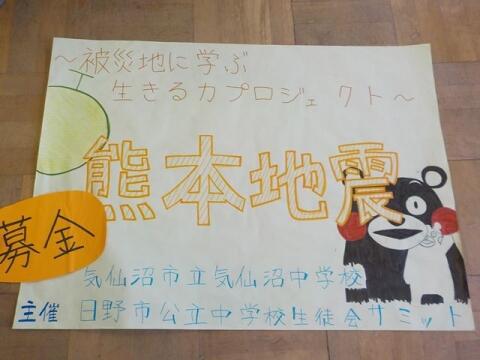 ～被災地に学ぶ
生きる力プロジェクト～
熊本地震
募金
気仙沼市立気仙沼中学校
主催 日野市公立中学校生徒会サミット